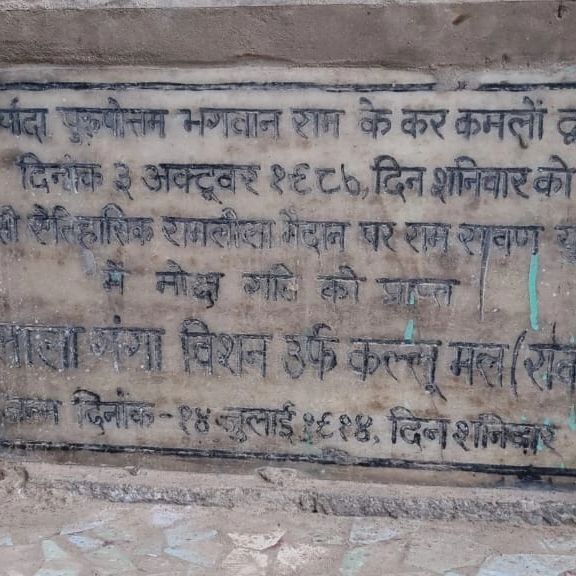 र्यादा पुरुषोत्तम भगवान राम के कर कमलों द्
दिनांक ३ अक्टूवर १९८७, दिन शनिवार को
सी ऐतिहासिक रामलीला मैदान पर राम रावण यु
में मोक्ष गति को प्राप्त
लाला गंगा विशन उर्फ कल्लू मल (राव
जन्म दिनांक - १४ जुलाई १९१४, दिन शनिवार